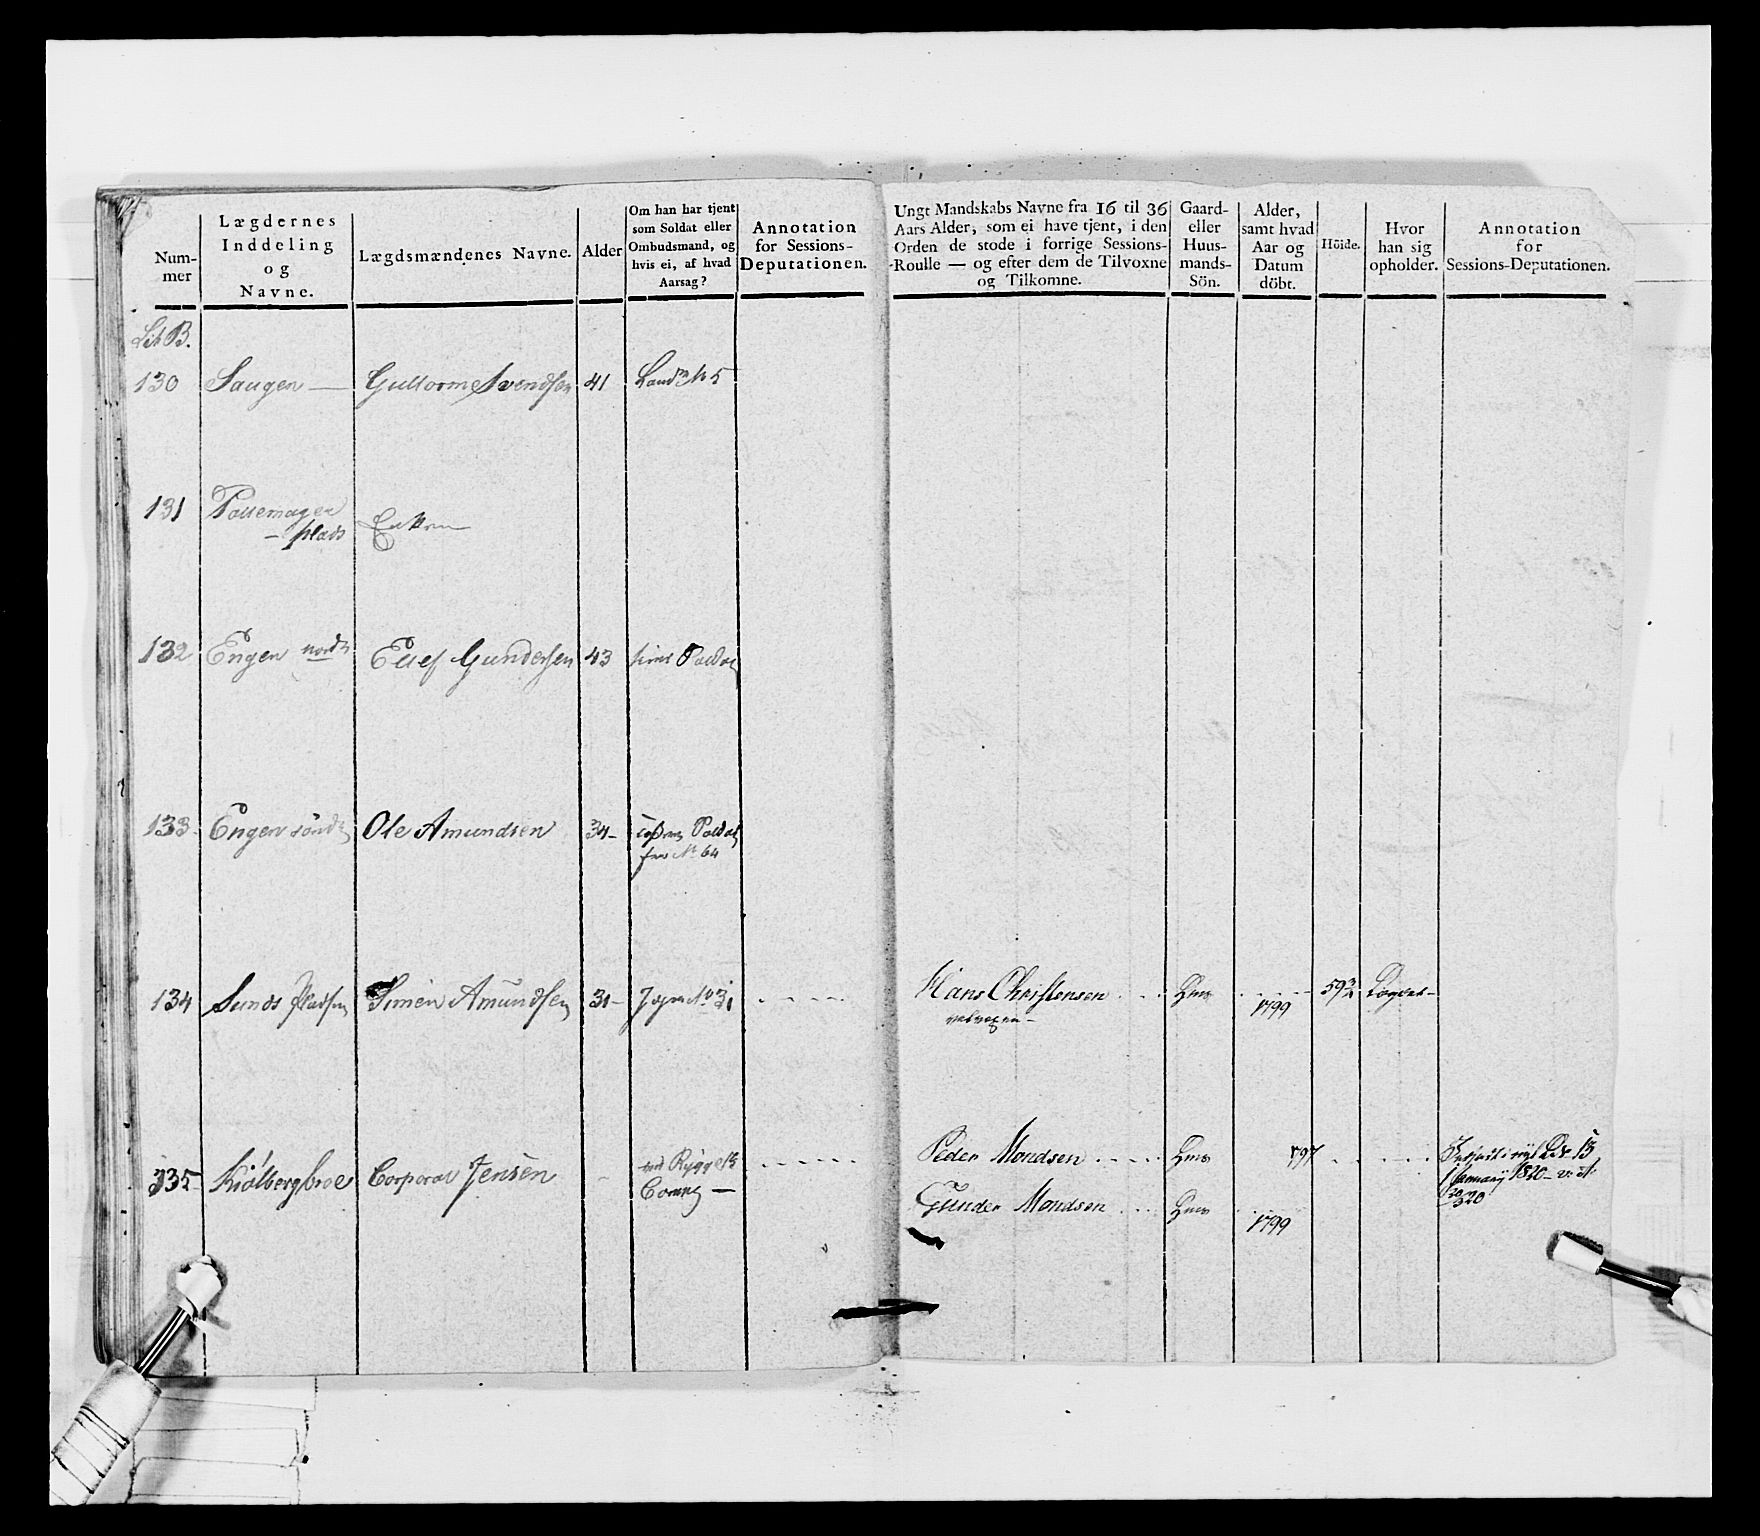 Num-
mer
Lægdernes
Inddeling
og
Navne.
Lægdsmændenes Navne.
Alder
Om han har tjent
som Soldat eller
Ombudsmand, og
hvis ei, af hvad
Aarsag?
Annotation
for Sessions-
Deputationen.
Ungt Mandskabs Navne fra 16 til 36
Aars Alder, som ei have tjent, i den
Orden de stode i forrige Sessions-
-Roulle — og efter dem de Tilvoxne
og Tilkomne.
Gaard-
eller
Huus-
mands-
Sön.
Alder,
samt hvad
Aar og
Datum
döbt.
Höide.
Hvor
han sig
opholder.
Annotation
for
Sessions-Deputationen.
Lit B.
130 Saugen — Guttorm Svendsen 41
131
- plads Enken
132 Engen nord Elef Gundersen 43
133 Engen sönd Ole Amundsen 34-
No 64
134 Sunds Pladsen Simen Amundsen 31- No 31 Hans Christensen Hms 1799 59¾
135 Kiölbergbroe Corporal Jensen ved Rygge Peder Mondsen Hms 797
Comp —
January 1820
Gunder Mondsen Hms 1799
320